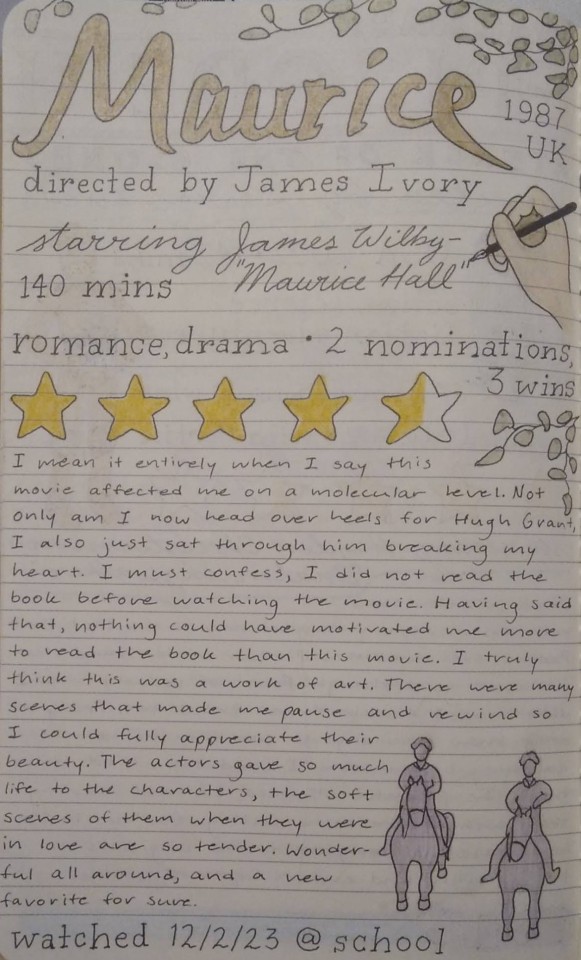 Maurice
1987
UK
directed by James Ivory
starring James Wilby-
"Maurice Hall"
140 mins
romance, drama • 2 nominations,
3 wins
I mean it entirely when I say this
movie affected me on a molecular level. Not
only am I now head over heels for Hugh Grant,
I also just sat through him breaking my
heart. I must confess, I did not read the
book before watching the movie. Having said
that, nothing could have motivated me more
to read the book than this movie. I truly
think this was a work of art. There were many
scenes that made me pause and rewind so
I could fully appreciate their
beauty. The actors gave so much
life to the characters, the soft
scenes of them when they were
in love are so tender. Wonder-
ful all around, and a new
favorite for sure.
watched 12/2/23 @ school